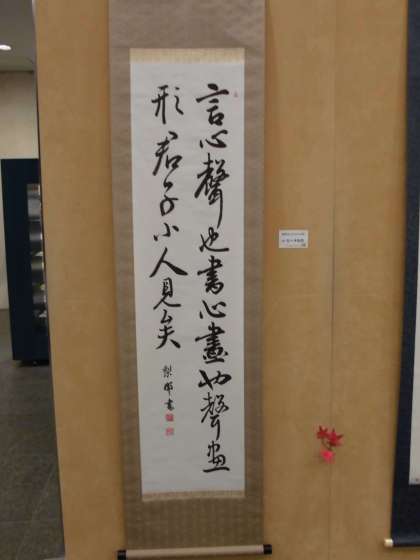 言心聲也書心畫也聲畫
形君子小人見矣
梨邨書